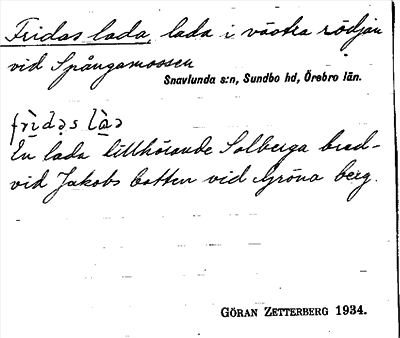 Fridas lada, lada i västra rödjan
vid Spångamossen
Snavlunda s:n, Sundbo hd, Örebro län.
frìdəs làa
En lada tillhörande Solberga bred-
vid Jakobs botten vid Gröna berg.
GÖRAN ZETTERBERG 1934.